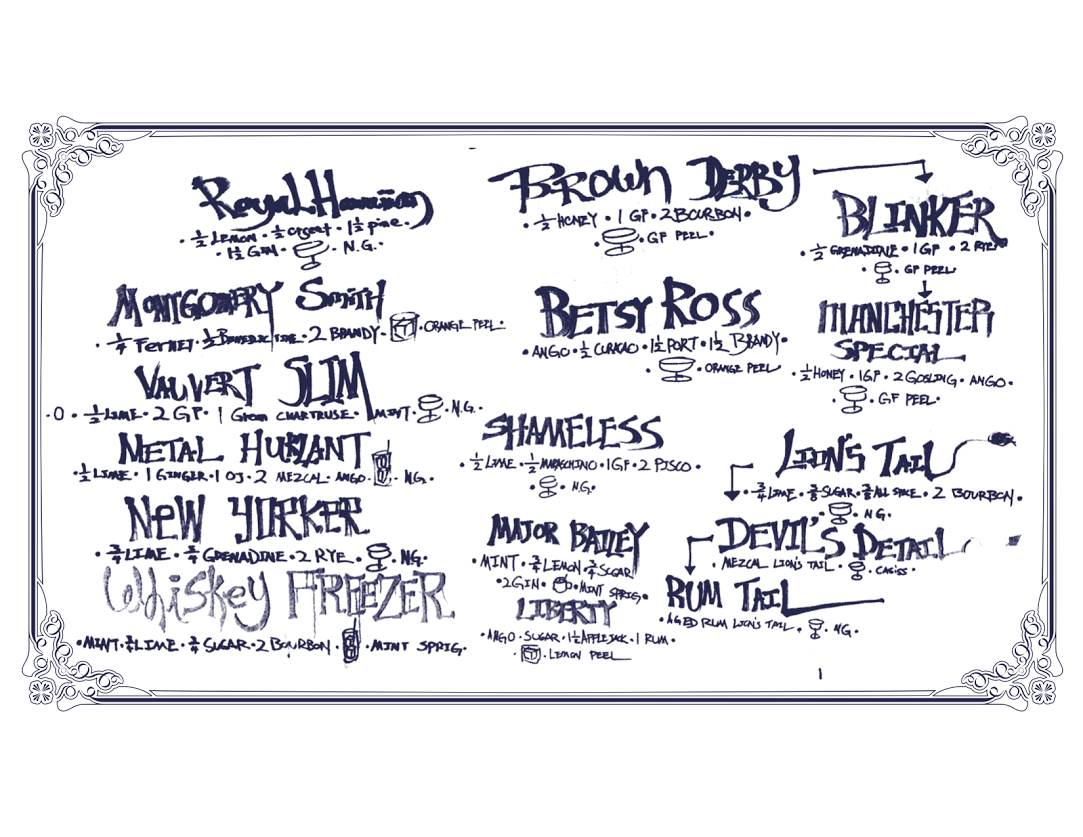 Royal Hawaiian
· ½ LEMON · ½ orgeat · 1½ pine ·
· 1½ GIN · · N.G. ·
MONTGOMERY SMITH
· ¼ FERNET · ½ BENEDICTINE · 2 BRANDY · · ORANGE PEEL ·
VAUVERT SLIM
· O · ½ LIME · 2 GF · 1 Green CHARTRUSE · MINT · · N.G. ·
METAL HURLANT
· ½ LIME · 1 GINGER · 1 OJ · 2 MEZCAL · ANGO · · N.G. ·
NEW YORKER
· ¾ LIME · ¾ GRENADINE · 2 RYE · · NG ·
WHISKEY FREEZER
· MINT · ¾ LIME · ¾ SUGAR · 2 BOURBON · · MINT SPRIG ·
BROWN DERBY
· ½ HONEY · 1 GF · 2 BOURBON ·
· GF PEEL ·
BETSY ROSS
· ANGO · ½ CURACAO · 1½ PORT · 1½ BRANDY ·
· · ORANGE PEEL ·
SHAMELESS
· ½ LIME · ½ MARASCHINO · 1GF · 2 PISCO ·
· · N.G. ·
MAJOR BAILEY
· MINT · ¾ LEMON · ¾ SUGAR
· 2 GIN · · MINT SPRIG ·
LIBERTY
· ANGO · SUGAR · 1½ APPLEJACK · 1 RUM ·
· · LEMON PEEL
BLINKER
· ½ GRENADINE · 1GF · 2 RYE ·
· · GF PEEL
MANCHESTER
SPECIAL
· ½ HONEY · 1GF · 2 GOSLING · ANGO ·
· GF PEEL ·
LION'S TAIL
· ¾ LIME · SUGAR · ALL SPICE · 2 BOURBON ·
· · NG ·
DEVIL'S DETAIL
· MEZCAL LION'S TAIL · · CASSIS ·
RUM TAIL
· AGED RUM LION'S TAIL · · NG ·